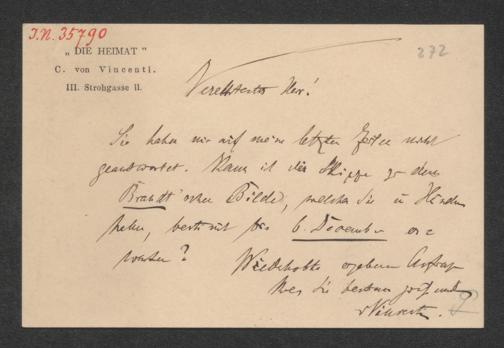 I.N. 35790
272
„ DIE HEIMAT "
C. von Vincenti.
III. Strohgasse 11.
Verehrtester Herr!
Sie haben mir auf meine letzten Zeilen nicht
geantwortet. Kann ich die Skizze zu dem
Brandt'schen Bilde, welches Sie in Händen
haben, bis 6. December
warten? Wiederholte ergebene Anfrage
Sie bestens grüßend
vVincenti.